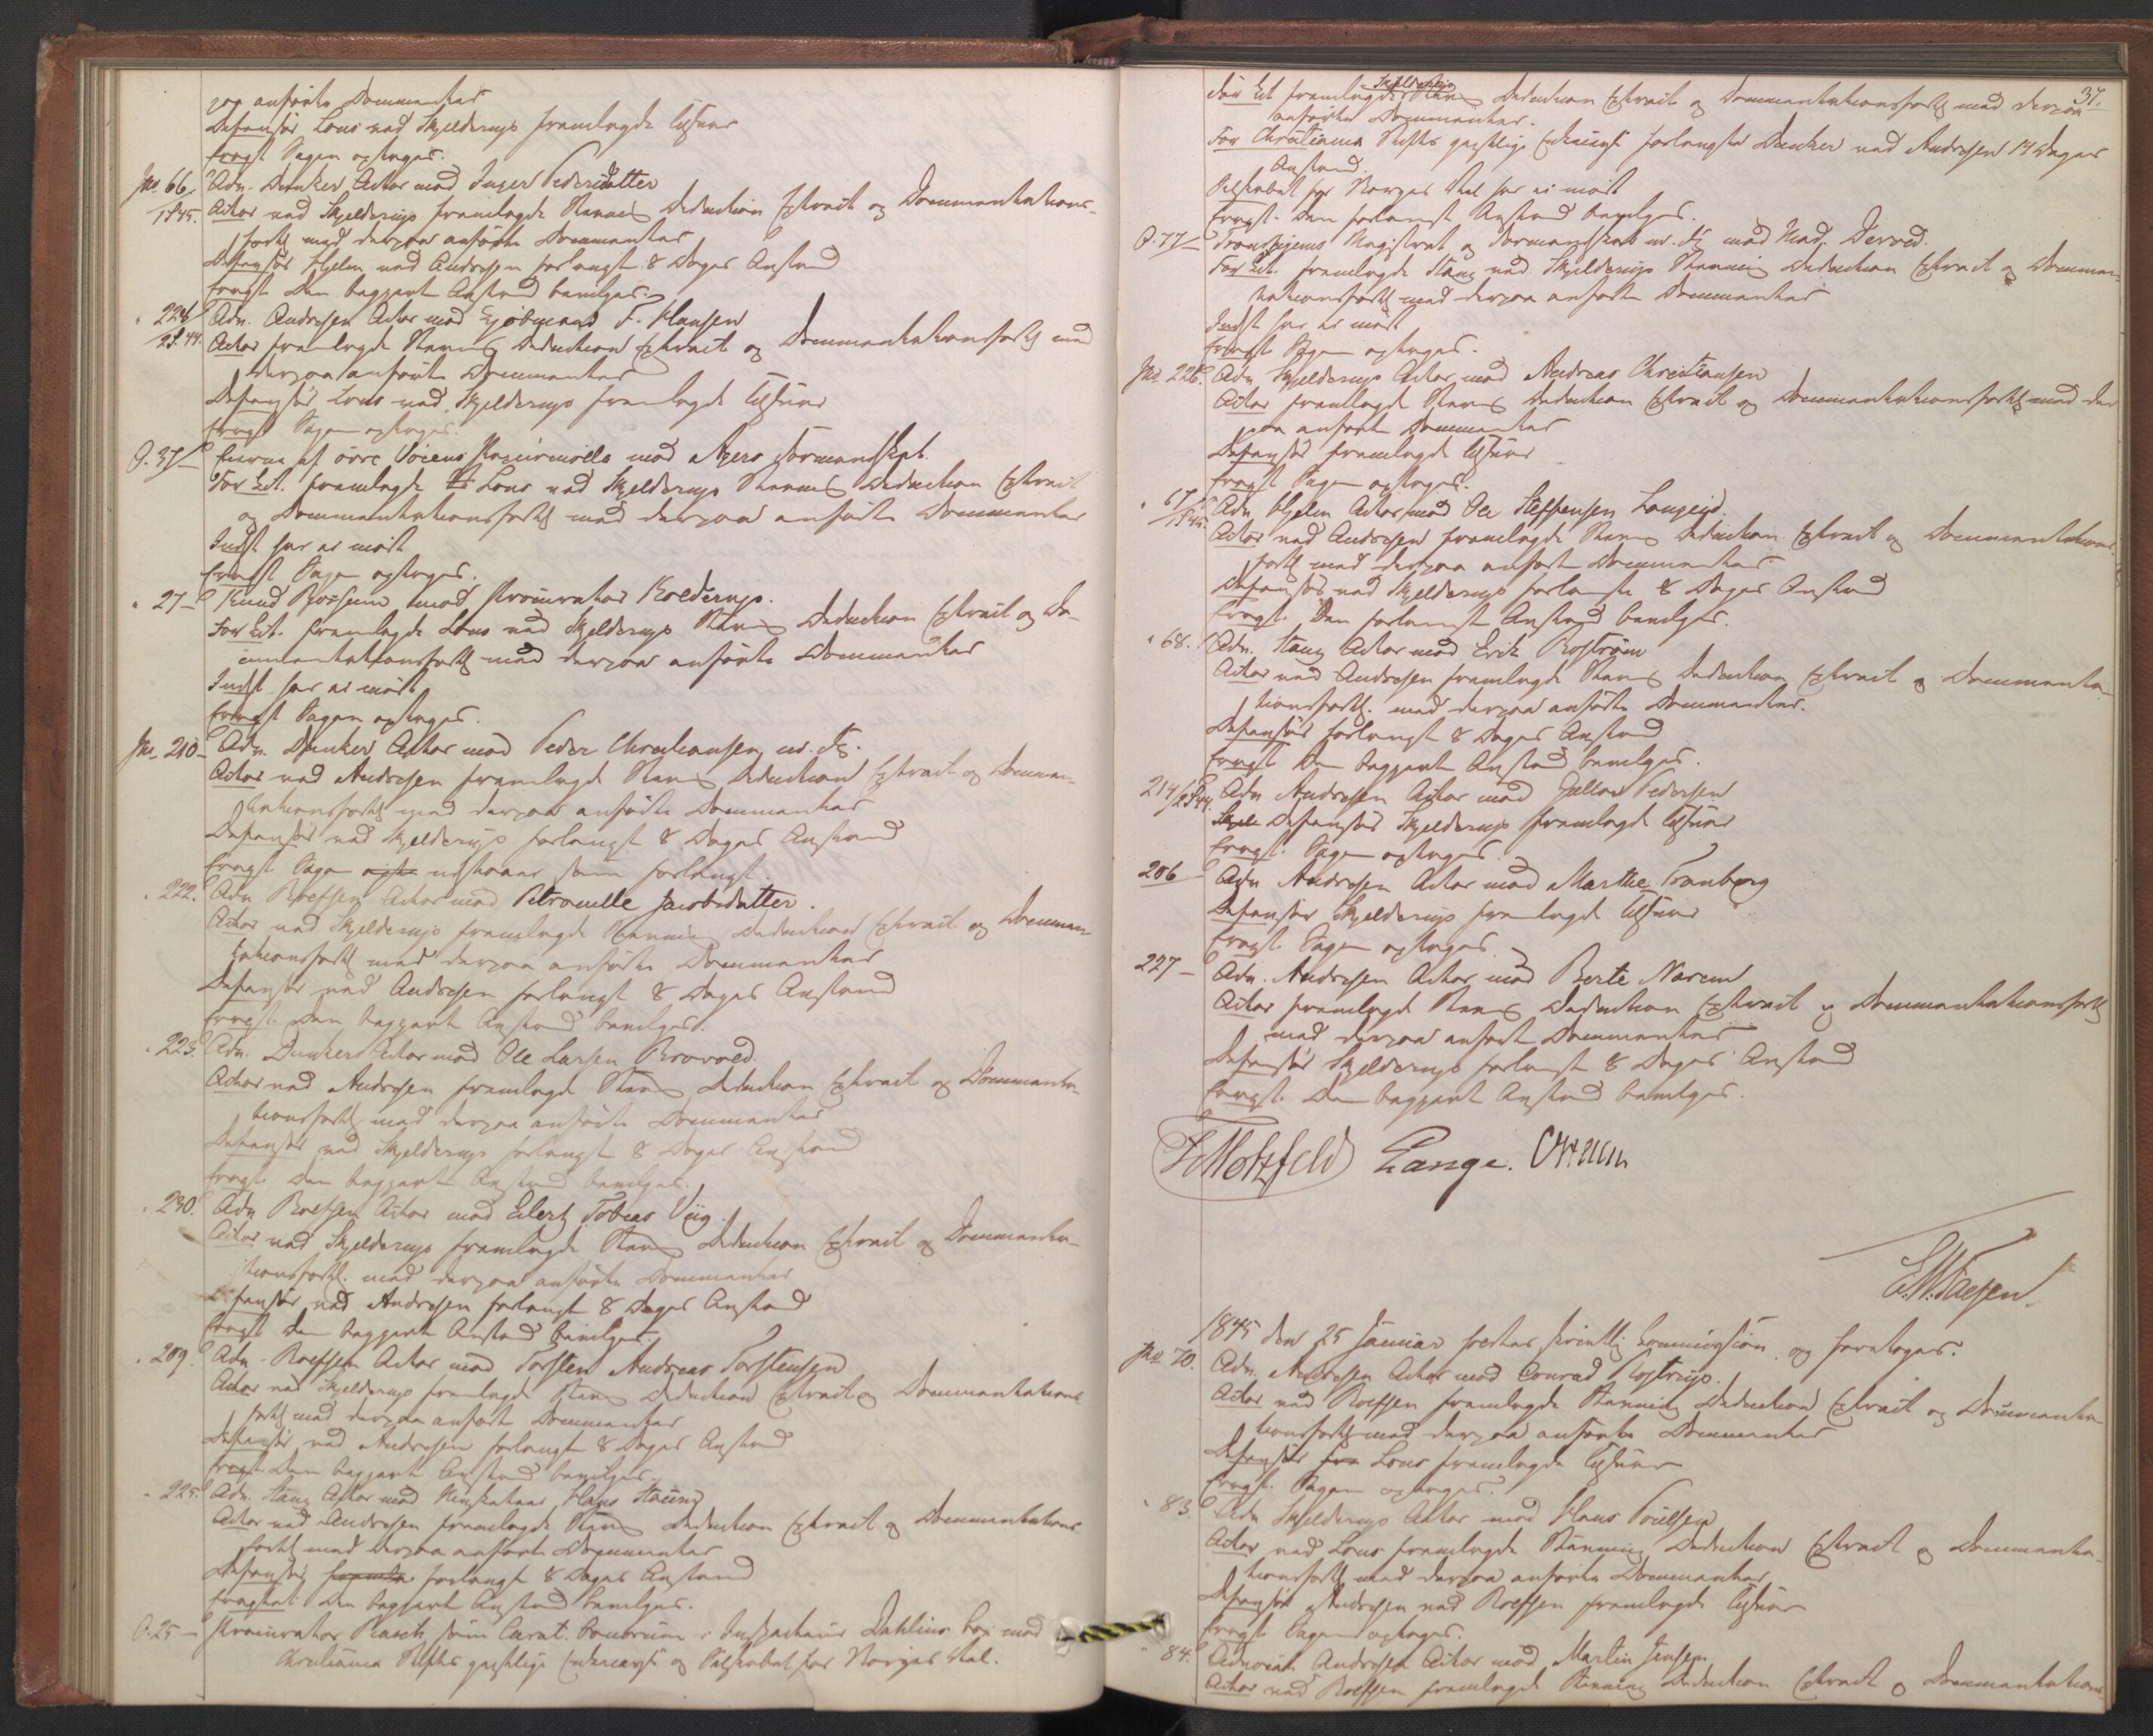 paa anførte Documenter
Defensor Lous ved Skjelderup fremlagde Tilsvar
Eragt. Sagen optages.
No 66 / 1845. Adv. Dunker Actor mod Inger Pedersdatter
Actor ved Skjelderup fremlagde Stevning Deduction Extract og Documentations-
forts med derpaa anførte Documenter
Defensor Hjelm ved Andresen forlangte 8 Dages Anstand
Eragt. Den begjærte Anstand bevilges.
" 224 / 1844. Adv. Andresen Actor mod Kjøbmand F. Hansen
Actor fremlagde Stevning Deduction Extract og Documentationsforts med
derpaa anførte Documenter
Defensor Lous ved Skjelderup fremlagde Tilsvar
Eragt Sagen optages.
O. 37 – Eierne af øvre Vøiens Papiirmølle mod Agers Formandskab.
For Cit. fremlagde Lous ved Skjelderup Stevning Deduction Extract
og Documentationsforts med derpaa anførte Documenter
Indst har ei mødt
Eragt Sagen optages.
" 27 – Knud Bjøsseim mod Procurator Kolderup.
For Cit. fremlagde Lous ved Skjelderup Stevning Deduction Extract og Do-
cumentationsforts med derpaa anførte Documenter
Indst har ei mødt
Eragt Sagen optages.
No 210 – Adv. Dunker Actor mod Peder Christiansen m. fl.
Actor ved Andresen fremlagde Stevning Deduction Extract og Documen-
tationsforts med derpaa anførte Documenter
Defensor ved Skjelderup forlangte 8 Dages Anstand
Eragt. Sagen udstaaer som forlangt.
" 222. Adv. Rolfsen Actor mod Petronille Jacobsdatter.
Actor ved Skjelderup fremlagde Stevning Deduction Extract og Documen-
tationsforts med derpaa anførte Documenter
Defensor ved Andresen forlangte 8 Dages Anstand
Eragt. Den begjærte Anstand bevilges.
" 223. Adv. Dunker Actor mod Ole Larsen Brovold.
Actor ved Andresen fremlagde Stevning Deduction Extract og Documenta-
tionsforts med derpaa anførte Documenter
Defensor ved Skjelderup forlangte 8 Dages Anstand
Eragt. Den begjærte Anstand bevilges.
" 230. Adv. Rolfsen Actor mod Eilert Tobias Viig.
Actor ved Skjelderup fremlagde Stevning Deduction Extract og Documenta-
tionsforts. med derpaa anførte Documenter
Defensor ved Andresen forlangte 8 Dages Anstand
Eragt Den begjærte Anstand bevilges.
" 209. Adv. Rolfsen Actor mod Torsten Andreas Torstensen
Actor ved Skjelderup fremlagde Stevning Deduction Extract og Documentations
forts med derpaa anførte Documenter
Defensor ved Andresen forlangte 8 Dages Anstand
Eragt. Den begjærte Anstand bevilges.
" 225. Adv. Stang Actor mod Hans
Actor ved Andresen fremlagde Stevning Deduction Extract og Documentations-
forts med derpaa anførte Documenter
Defensor forlangte 8 Dages Anstand
Eragtet Den begjærte Anstand bevilges.
O. 25 – Procurator Rasch som Curat. bonorum i Dahlins Bo mod
Christiania Stifts geistlige Enkecasse og Selskabet for Norges Vel.
37.
For Cit fremlagde Skjelderup Stevning Deduction Extract og Documentationsforts med derpaa
anførte Documenter.
For Christiania Stifts geistlige Enkecasse forlangte Dunker ved Andresen 14 Dages
Anstand.
Selskabet for Norges Vel har ei mødt
Eragt. Den forlangte Anstand bevilges.
O. 77 – Trondhjems Magistrat og Formandskab m. fl. mod Mad.
For Cit. fremlagde Stang ved Skjelderup Stevning Deduction Extract og Documen-
tationsforts med derpaa anførte Documenter
Indst har ei mødt
Eragt. Sagen optages.
No 226. Adv. Skjelderup Actor mod Andreas Christiansen
Actor fremlagde Stevning Deduction Extract og Documentationsforts med der
paa anførte Documenter
Defensor fremlagde Tilsvar
Eragt Sagen optages.
" 67 / 1845. Adv. Hjelm Actor mod Ole Steffensen Langeid.
Actor ved Andresen fremlagde Stevning Deduction Extract og Documentations-
forts med derpaa anførte Documenter
Defensor ved Skjelderup forlangte 8 Dages Anstand
Eragt. Den forlangte Anstand bevilges.
" 68. Adv. Stang Actor mod Erik Rostrøm
Actor ved Andresen fremlagde Stevning Deduction Extract og Documenta-
tionsforts. med derpaa anførte Documenter.
Defensor forlangte 8 Dages Anstand
Eragt. Den begjærte Anstand bevilges.
214 / 1844. Adv. Andresen Actor mod Pedersen
Defensor Skjelderup fremlagde Tilsvar
Eragt. Sagen optages.
206 – Adv. Andresen Actor mod Marthe Tranberg
Defensor Skjelderup fremlagde Tilsvar
Eragt. Sagen optages.
227 – Adv. Andresen Actor mod Berte Narem
Actor fremlagde Stevning Deduction Extract og Documentationsforts
med derpaa anførte Documenter
Defensor Skjelderup forlangte 8 Dages Anstand
Eragt. Den begjærte Anstand bevilges.
Motzfeld Lange.
1845 den 25 Januar holdtes skriftlig Commission og foretoges.
No 70. Adv. Andresen Actor mod Conrad Tostrup.
Actor ved Rolfsen fremlagde Stevning Deduction Extract og Documenta-
tionsforts med derpaa anførte Documenter
Defensor Lous fremlagde Tilsvar
Eragt. Sagen optages.
" 83. Adv. Skjelderup Actor mod Hans Poulsen
Actor ved Lous fremlagde Stevning Deduction Extract og Documenta-
tionsforts med derpaa anførte Documenter
Defensor Andresen ved Rolfsen fremlagde Tilsvar
Eragt Sagen optages.
" 84. Advocat Andresen Actor mod Martin Jensen
Actor ved Rolfsen fremlagde Stevning Deduction Extract og Documentations